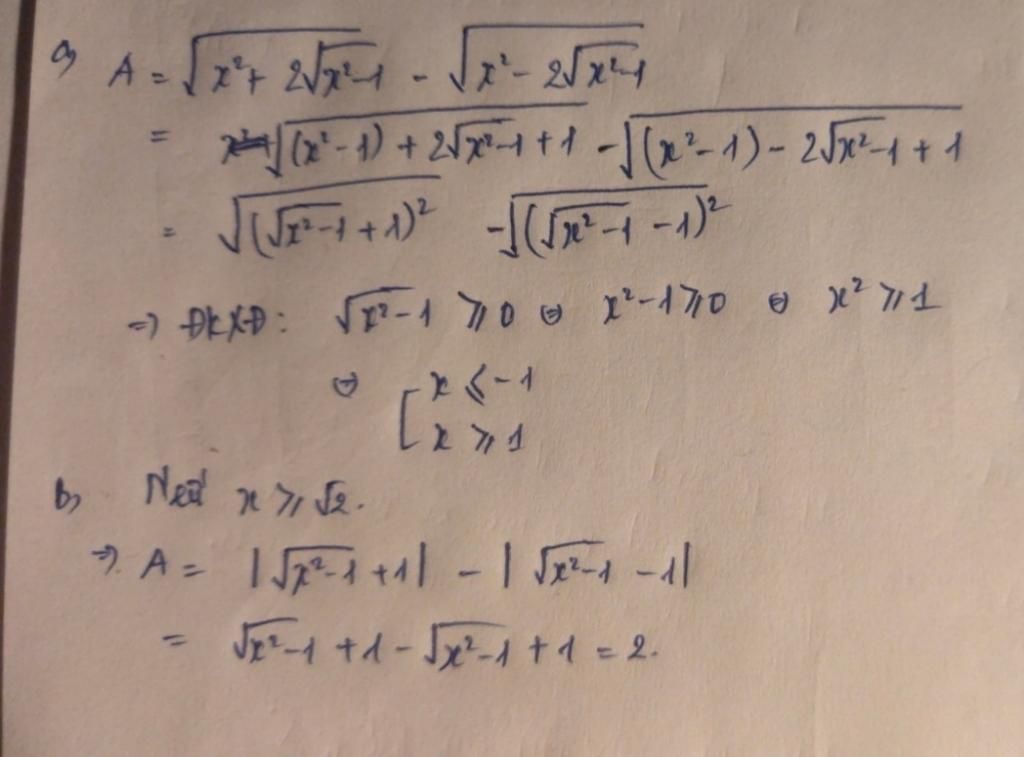 a, A = √(x² + 2√(x²-1)) - √(x² - 2√(x²-1))
= √((x²-1) + 2√(x²-1) + 1) - √((x²-1) - 2√(x²-1) + 1)
= √((√(x²-1) + 1)²) - √((√(x²-1) - 1)²)
=> ĐKXĐ: √(x²-1) ⩾ 0 ⇔ x²-1 ⩾ 0 ⇔ x² ⩾ 1
⇔ [ x ⩽ -1
x ⩾ 1
b, Nếu x ⩾ √2.
=> A = |√(x²-1) + 1| - |√(x²-1) - 1|
= √(x²-1) + 1 - √(x²-1) + 1 = 2.